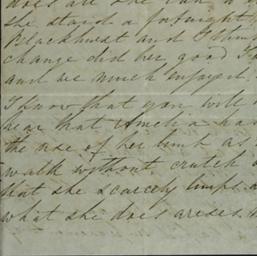 does all she can
she staid a fortnight
Blackhurst and I think
change did her good
and we much enjoyed
I know that you will
hear that Amelia has
the use of her limb as
walk without crutch
that she scarcely limps
what she does arises